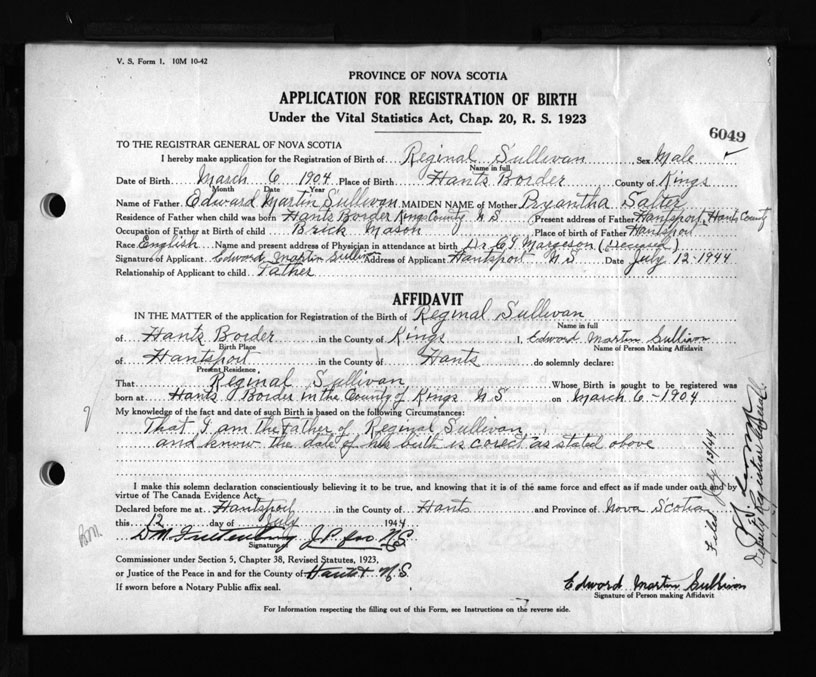 V. S. Form 1. 10M 10-42
PROVINCE OF NOVA SCOTIA
APPLICATION FOR REGISTRATION OF BIRTH
Under the Vital Statistics Act, Chap. 20, R. S. 1923
6049
TO THE REGISTRAR GENERAL OF NOVA SCOTIA
I hereby make application for the Registration of Birth of Reginal Sullivan Sex Male
Name in full
Date of Birth March 6 1904 Place of Birth Hants Border County of Kings
Month Date Year
Name of Father Edward Martin Sullivan MAIDEN NAME of Mother Bryantha Salter
Residence of Father when child was born Hants Border Kings County N S Present address of Father Hantsport, Hants County
Occupation of Father at Birth of child Brick Mason Place of birth of Father Hantsport
Race English Name and present address of Physician in attendance at birth Dr. Margeson (Deceased)
Signature of Applicant Edward Martin Sullivan Address of Applicant Hantsport N S Date July 12-1944
Relationship of Applicant to child Father
AFFIDAVIT
IN THE MATTER of the application for Registration of the Birth of Reginal Sullivan
Name in full
of Hants Border in the County of Kings I, Edward Martin Sullivan
Birth Place Name of Person Making Affidavit
of Hantsport in the County of Hants do solemnly declare:
Present Residence
That Reginal Sullivan Whose Birth is sought to be registered was
born at Hants Border in the County of Kings N S on March 6.-1904
My knowledge of the fact and date of such Birth is based on the following Circumstances:
That I am the Father of Reginal Sullivan
and know the date of his birth is corect as stated above
I make this solemn declaration conscientiously believing it to be true, and knowing that it is of the same force and effect as if made under oath and by
virtue of The Canada Evidence Act.
Declared before me at Hantsport in the County of Hants and Province of Nova Scotia
this 12 day of July 1944
Signature of J.P. for N.S.
Commissioner under Section 5, Chapter 38, Revised Statutes, 1923,
or Justice of the Peace in and for the County of Hants N.S.
If sworn before a Notary Public affix seal.
Edward Martin Sullivan
Signature of Person making Affidavit
For Information respecting the filling out of this Form, see Instructions on the reverse side.
Filed July 13/44
Deputy Registrar General